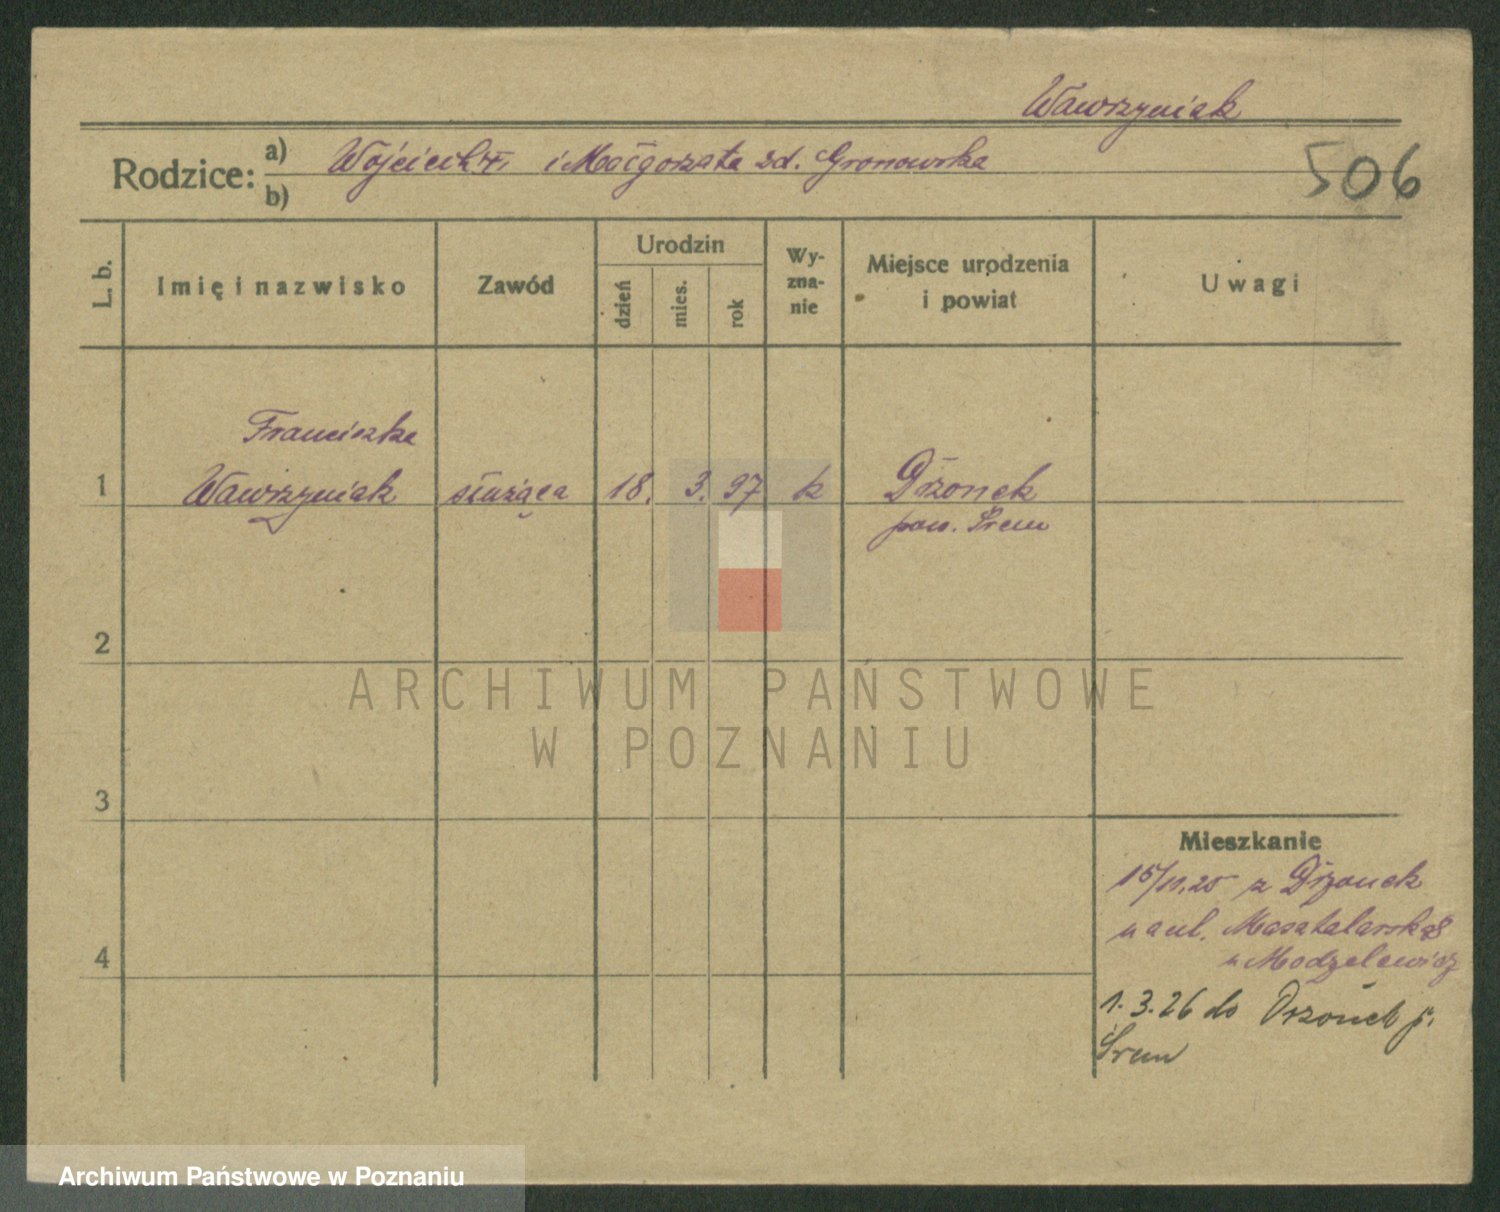 Wawrzyniak
Rodzice: a) Wojciech W. i Małgorzata zd. Gronowska
b)
506
L. b.
Imię i nazwisko
Zawód
Urodzin
dzień
mies.
rok
Wy-
zna-
nie
Miejsce urodzenia
i powiat
Uwagi
Franciszka
1 Wawrzyniak służąca 18. 3. 97 k Drzonek
pow. Śrem
2
ARCHIWUM PAŃSTWOWE
W POZNANIU
3
Mieszkanie
15/11.25 z Drzonek
na ul. Masztalarską 8
u Modzelewicz
4
1.3.26 do Drzonek p.
Śrem
Archiwum Państwowe w Poznaniu